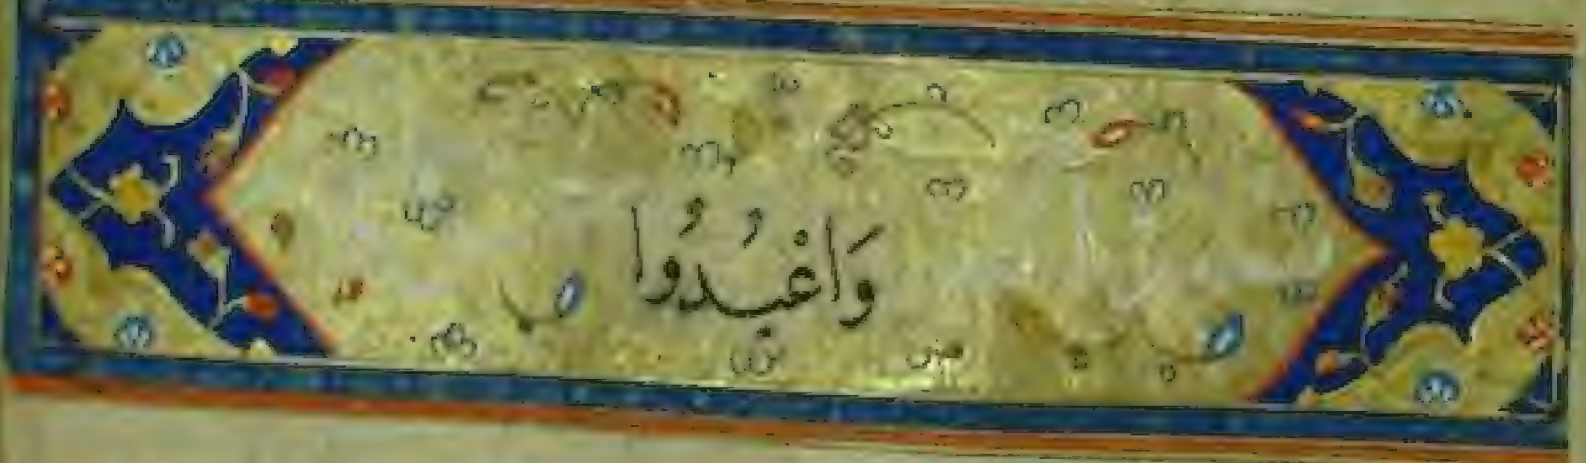 وَاعْبُدُوا